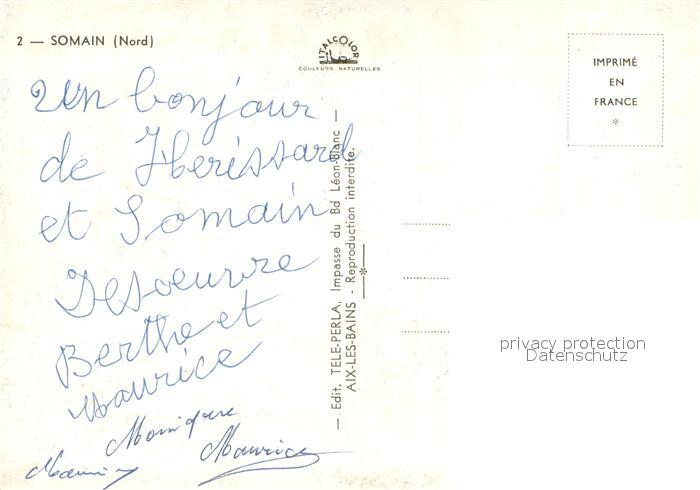 2 — SOMAIN (Nord)
ITALCOLOR
COULEURS NATURELLES
IMPRIMÉ
EN
FRANCE
*
Un bonjour
de
et Somain
Desoeuvre
Berthe et
Maurice
Monique
Maurice
— Edit. TELE-PERLA, Impasse du Bd Léon-Blanc —
AIX-LES-BAINS - Reproduction interdite.
privacy protection
Datenschutz